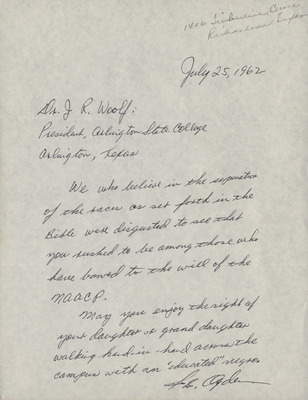 1406
Richardson Texas
July 25, 1962
Dr. J. R. Woolf:
President, Arlington State College
Arlington, Texas
We who believe in the separation
of the races as set forth in the
Bible were disgusted to see that
you rushed to be among those who
have bowed to the will of the
NAACP.
May you enjoy the sight of
your daughter or grand daughter
walking hand-in-hand across the
campus with an "educated" negro.
Ogden